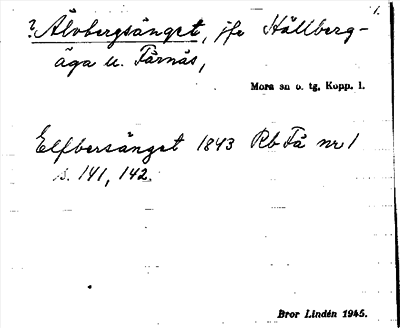 1.
? Älvbergsänget, jfr Hållberg-
äga u. Färnäs,
Mora sn o. tg, Kopp. l.
Elfbersänget 1843 Rb Fä nr 1
s. 141, 142.
Bror Lindén 1945.